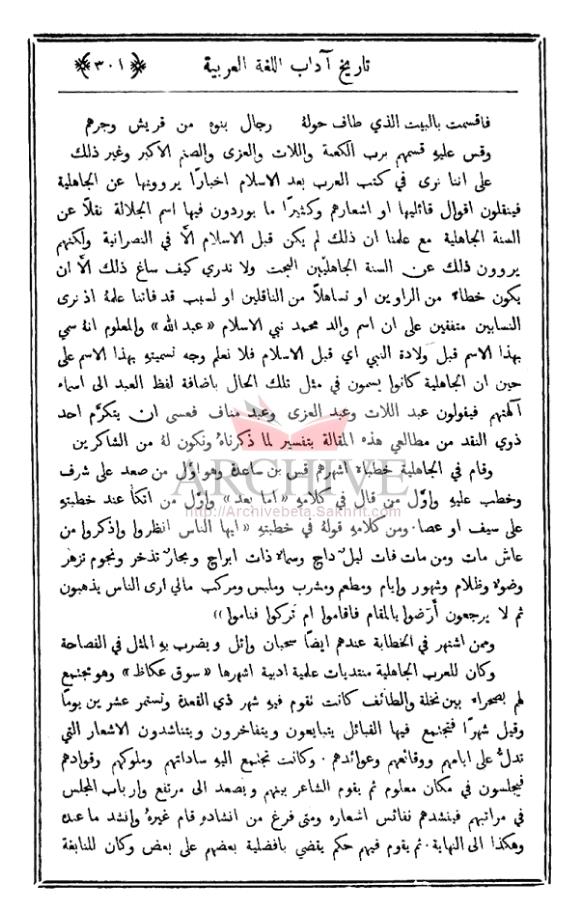 تاريخ آداب اللغة العربية ﴿٣٠١﴾
فاقسمت بالبيت الذي طاف حولهُ رجال بنوه من قريش وجرهم
وقس عليهِ قسمهم برب الكعبة واللات والعزى والصنم الاكبر وغير ذلك
على اننا نرى في كتب العرب بعد الاسلام اخبارًا يروونها عن الجاهلية
فينقلون اقوال قائليها او اشعارهم وكثيرًا ما يوردون فيها اسم الجلالة نقلاً عن
السنة الجاهلية مع علمنا ان ذلك لم يكن قبل الاسلام الاّ في النصرانية ولكنهم
يروون ذلك عن السنة الجاهليّين البحت ولا ندري كيف ساغ ذلك الاّ ان
يكون خطاء من الراوين او تساهلاً من الناقلين او لسبب قد فاتنا علمهُ اذ نرى
النسابين متفقين على ان اسم والد محمد نبي الاسلام «عبد الله» والمعلوم انهُ سمي
بهذا الاسم قبل ولادة النبي اي قبل الاسلام فلا نعلم وجه تسميتهِ بهذا الاسم على
حين ان الجاهلية كانوا يسمون في مثل تلك الحال باضافة لفظ العبد الى اسماء
آلهتهم فيقولون عبد اللات وعبد العزى وعبد مناف فعسى ان يتكرَّم احد
ذوي النقد من مطالعي هذه المقالة بتفسير لما ذكرناهُ ونكون لهُ من الشاكرين
وقام في الجاهلية خطباء اشهرهم قس بن ساعدة وهو اوَّل من صعد على شرف
وخطب عليهِ واوَّل من قال في كلامهِ «اما بعد» واوَّل من اتكأ عند خطبتهِ
على سيف او عصا. ومن كلامهِ قولهُ في خطبتهِ «ايها الناس انظروا واذكروا من
عاش مات ومن مات فات ليلٌ داجٍ وسماء ذات ابراج وبحار تذخر ونجوم تزهر
وضوء وظلام وشهور وايام ومطعم ومشرب وملبس ومركب مالي ارى الناس يذهبون
ثم لا يرجعون أَرَضوا بالمقام فاقاموا ام تركوا فناموا»
وممن اشتهر في الخطابة عندهم ايضًا سحبان وائل ويضرب بهِ المثل في الفصاحة
وكان للعرب الجاهلية منتديات علمية ادبية اشهرها «سوق عكاظ» وهو مجتمع
لهم بصحراء بين نخلة والطائف كانت تقوم فيهِ شهر ذي القعدة وتستمر عشرين يومًا
وقيل شهرًا فتجتمع فيها القبائل يتبايعون ويتفاخرون ويتناشدون الاشعار التي
تدلُّ على ايامهم ووقائعهم وعوائدهم. وكانت تجتمع اليهِ ساداتهم وملوكهم وقوادهم
فيجلسون في مكان معلوم ثم يقوم الشاعر بينهم ويصعد الى مرتفع وارباب المجلس
في مراتبهم فينشدهم نفائس اشعاره ومتى فرغ من انشادهِ قام غيرهُ وانشد ما عنده
وهكذا الى النهاية. ثم يقوم فيهم حكم يقضي بافضلية بعضهم على بعض وكان للنابغة
ARCHIVE
http://Archivebeta.Sakhrit.com